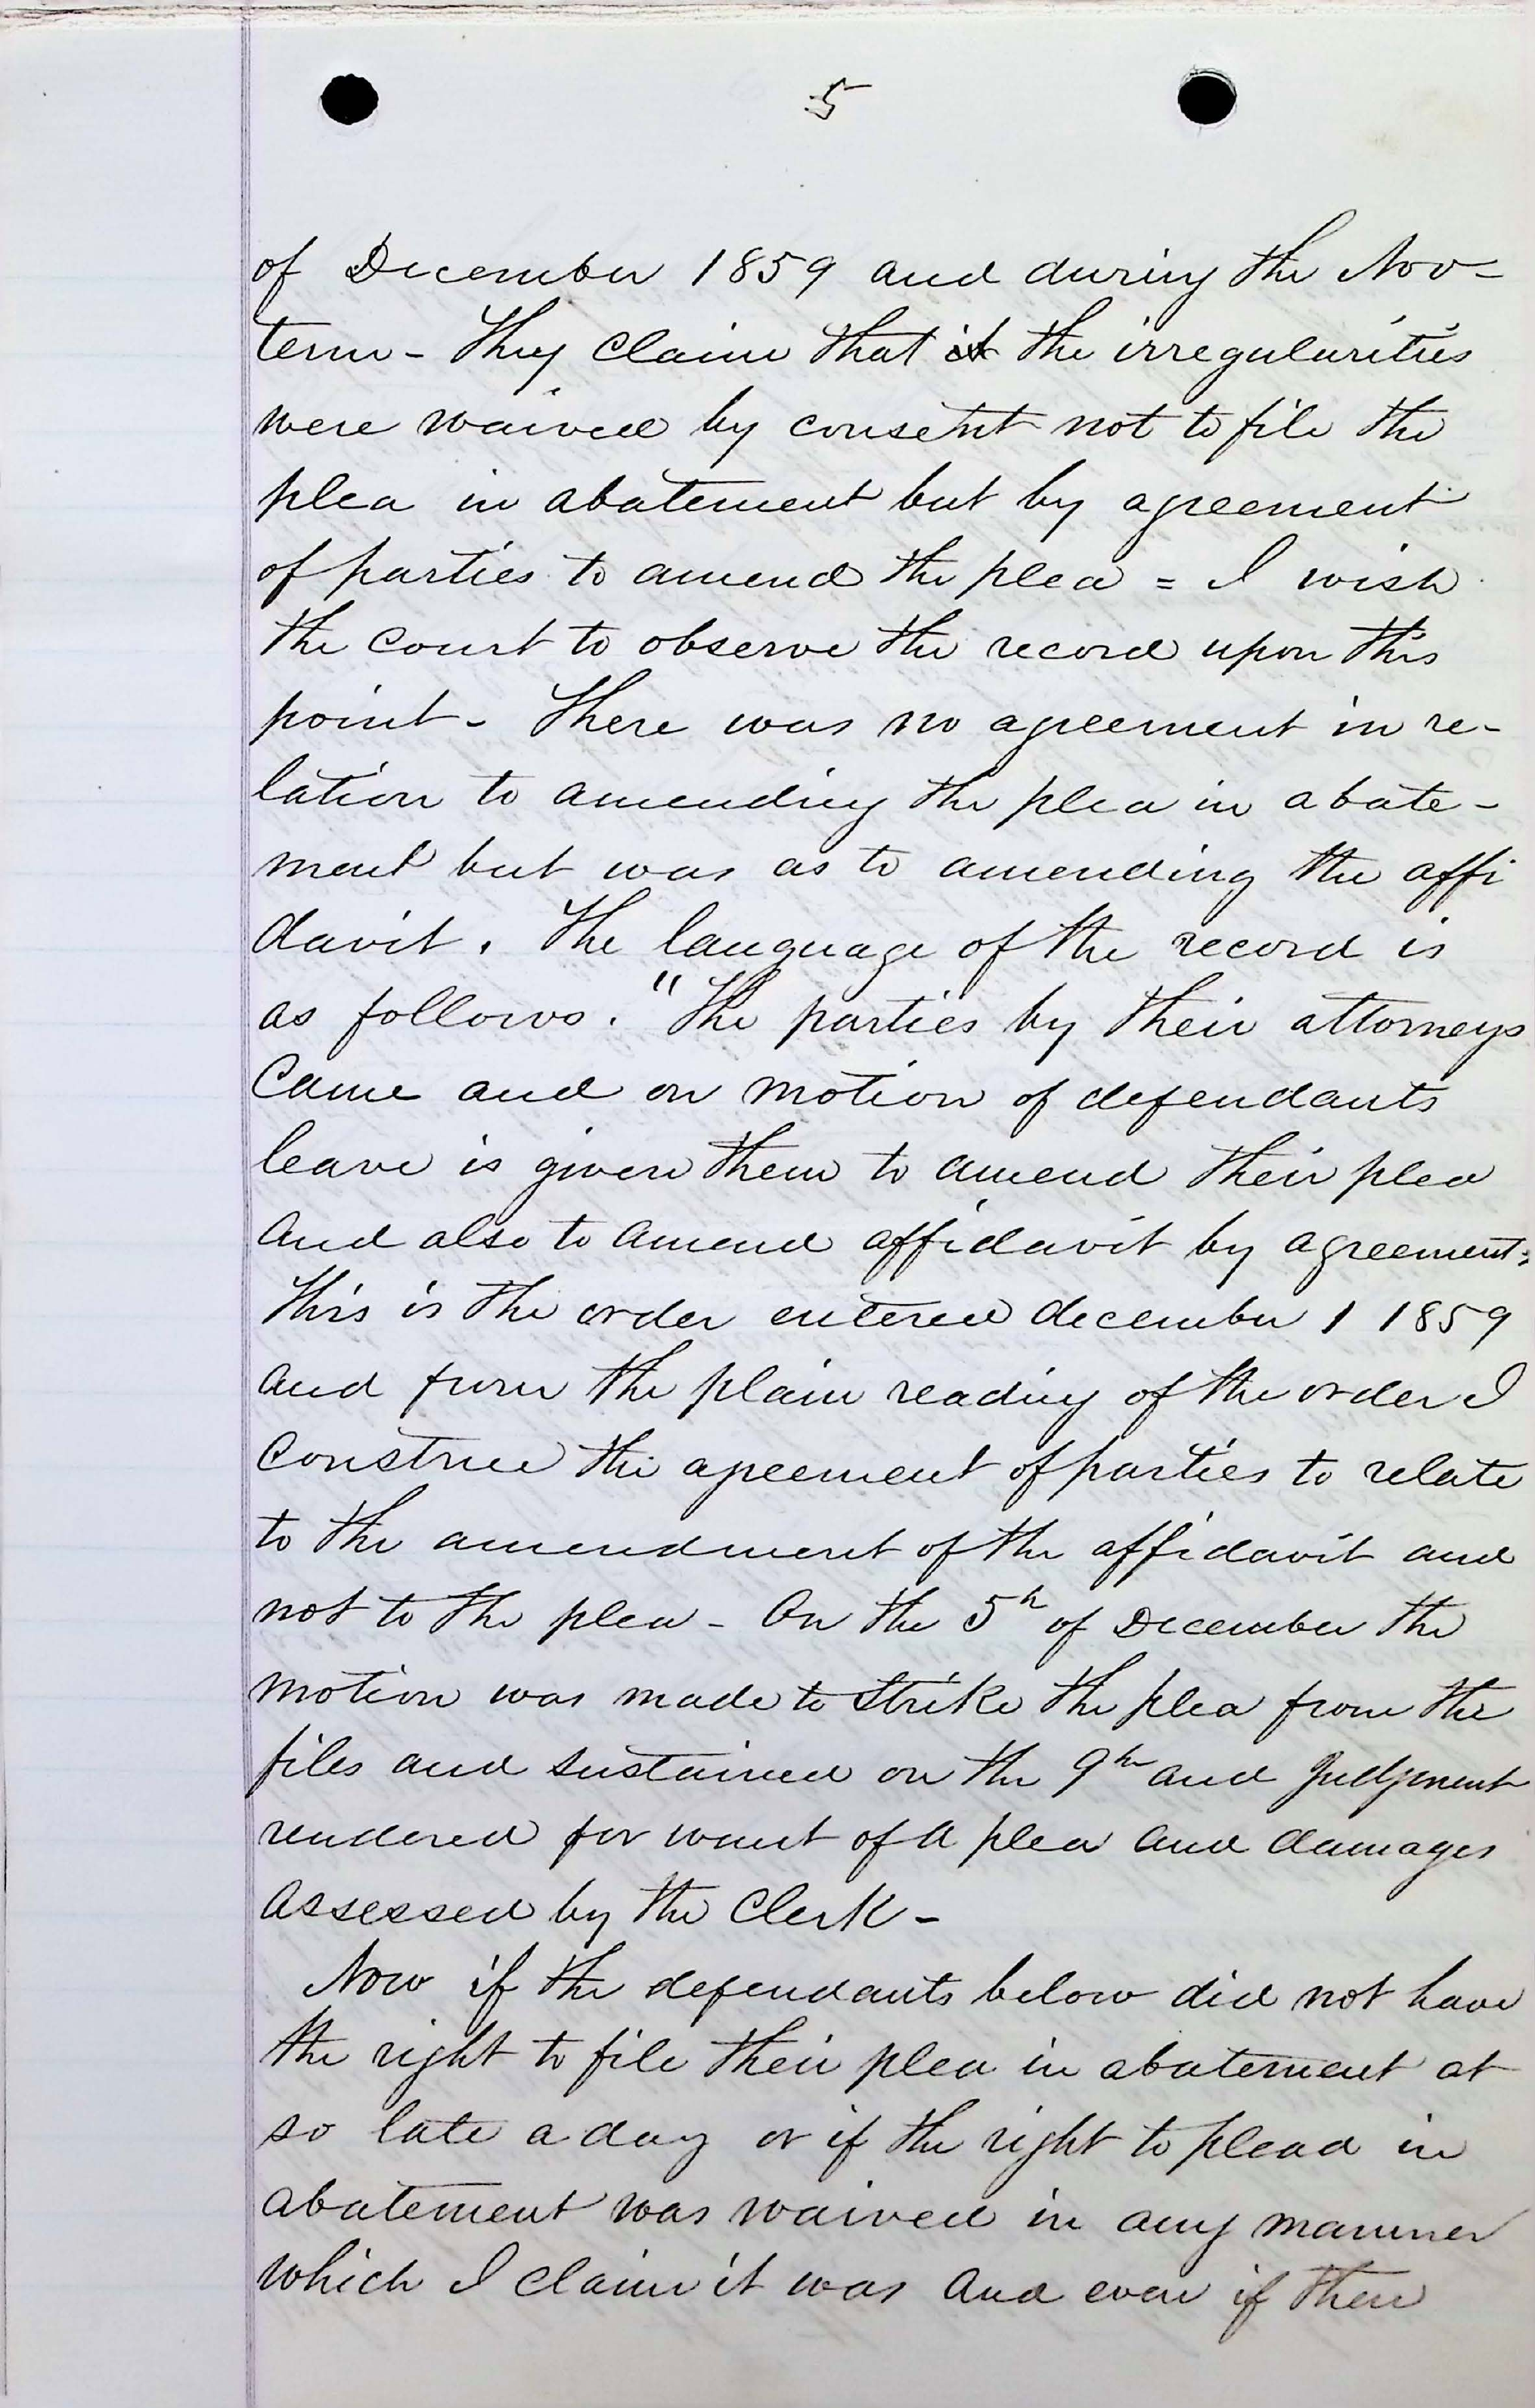 5
of December 1859 and during the Nov-
term - They claim that it the irregularities
were waived by consent not to file the
plea in abatement but by agreement
of parties to amend the plea = I wish
the court to observe the record upon this
point - There was no agreement in re-
lation to amending the plea in abate-
ment but was as to amending the affi
davit. The language of the record is
as follows. "The parties by their attorneys
Came and on motion of defendants
leave is given them to amend their plea
and also to amend affidavit by agreement"
This is the order entered december 1 1859
and from the plain reading of the order I
construe the agreement of parties to relate
to the amendment of the affidavit and
not to the plea - On the 5th of December the
motion was made to strike the plea from the
files and sustained on the 9th and Judgment
rendered for want of a plea and damages
assessed by the Clerk -
Now if the defendants below did not have
the right to file their plea in abatement at
so late a day or if the right to plead in
abatement was waived in any manner
which I claim it was and even if their